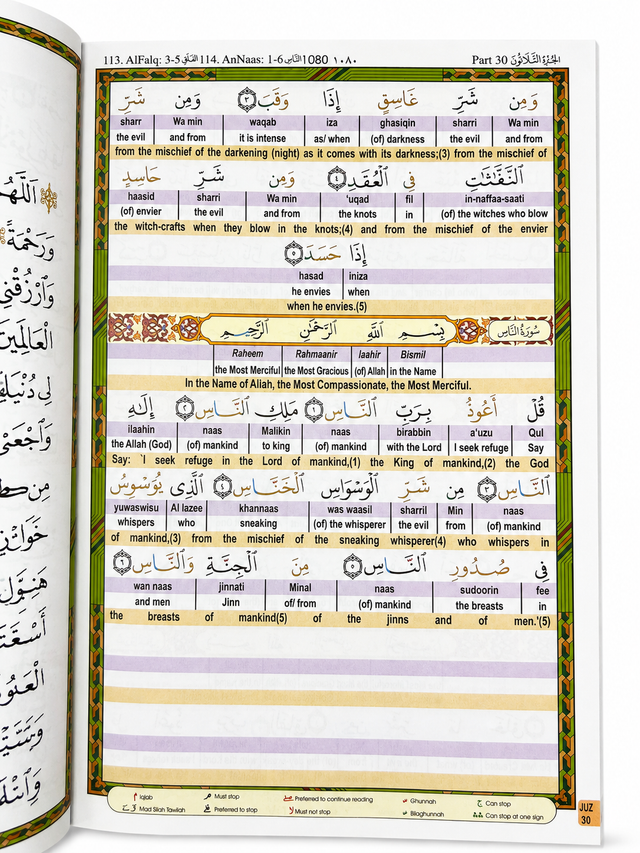 113. AlFalq: 3-5 الفلق 114. AnNaas: 1-6 الناس 1080 ١٠٨٠ Part 30 الجزء الثلاثون
وَمِن شَرِّ غَاسِقٍ إِذَا وَقَبَ ٣ وَمِن شَرِّ
sharr Wa min waqab iza ghasiqin sharri Wa min
the evil and from it is intense as/ when (of) darkness the evil and from
from the mischief of the darkening (night) as it comes with its darkness;(3) from the mischief of
النَّفَّاثَاتِ فِي الْعُقَدِ ٤ وَمِن شَرِّ حَاسِدٍ
haasid sharri Wa min 'uqad fil in-naffaa-saati
(of) envier the evil and from the knots in (of) the witches who blow
the witch-crafts when they blow in the knots;(4) and from the mischief of the envier
إِذَا حَسَدَ ٥
hasad iniza
he envies when
when he envies.(5)
سُورَةُ النَّاسِ
بِسْمِ اللَّهِ الرَّحْمَٰنِ الرَّحِيمِ
Raheem Rahmaanir laahir Bismil
the Most Merciful the Most Gracious (of) Allah in the Name
In the Name of Allah, the Most Compassionate, the Most Merciful.
قُلْ أَعُوذُ بِرَبِّ النَّاسِ ١ مَلِكِ النَّاسِ ٢ إِلَٰهِ
ilaahin naas Malikin naas birabbin a'uzu Qul
the Allah (God) (of) mankind to king (of) mankind with the Lord I seek refuge Say
Say: `I seek refuge in the Lord of mankind,(1) the King of mankind,(2) the God
النَّاسِ ٣ مِن شَرِّ الْوَسْوَاسِ الْخَنَّاسِ ٤ الَّذِي يُوَسْوِسُ
yuwaswisu Al lazee khannaas was waasil sharril Min naas
whispers who sneaking (of) the whisperer the evil from (of) mankind
of mankind,(3) from the mischief of the sneaking whisperer(4) who whispers in
فِي صُدُورِ النَّاسِ ٥ مِنَ الْجِنَّةِ وَالنَّاسِ ٦
wan naas jinnati Minal naas sudoorin fee
and men Jinn of/ from (of) mankind the breasts in
the breasts of mankind(5) of the jinns and of men.'(5)
Iqlab Must stop Preferred to continue reading Ghunnah Can stop
Mad Sliah Tawilah Preferred to stop Must not stop Bilaghunnah Can stop at one sign
JUZ
30
وَرَحْمَةً
وَارْزُقْنِي